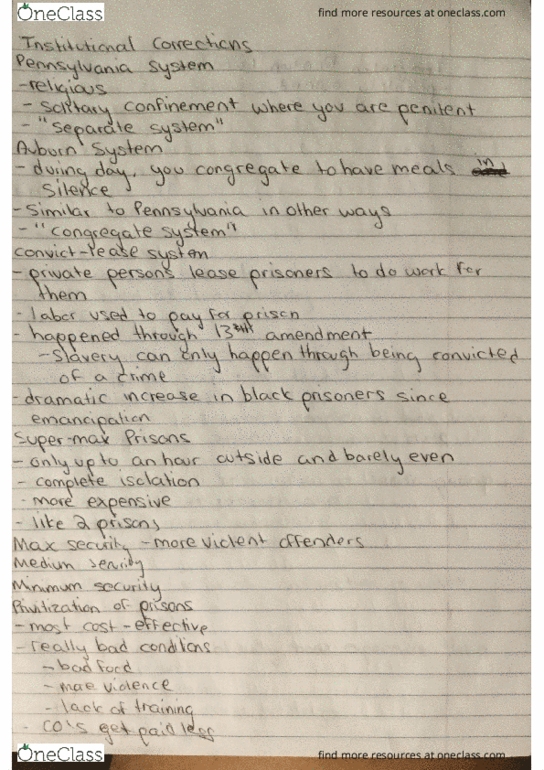 OneClass
find more resources at oneclass.com
Institutional Corrections
Pennsylvania system
-religious
- solitary confinement where you are penitent
- "separate system"
Auburn System
- during day, you congregate to have meals in
Silence
- Similar to Pennsylvania in other ways
- "congregate system"
convict-lease system
- private persons lease prisoners to do work for
them
- labor used to pay for prison
- happened through 13th amendment
- Slavery can only happen through being convicted
of a crime
- dramatic increase in black prisoners since
emancipation
Super-max Prisons
- only up to an hour outside and barely even
- complete isolation
- more expensive
- like 2 prisons
Max security - more violent offenders
Medium security
Minimum security
Privitization of prisons
- most cost-effective
- really bad conditions
- bad food
- more violence
- lack of training
- CO's get paid less
OneClass
find more resources at oneclass.com